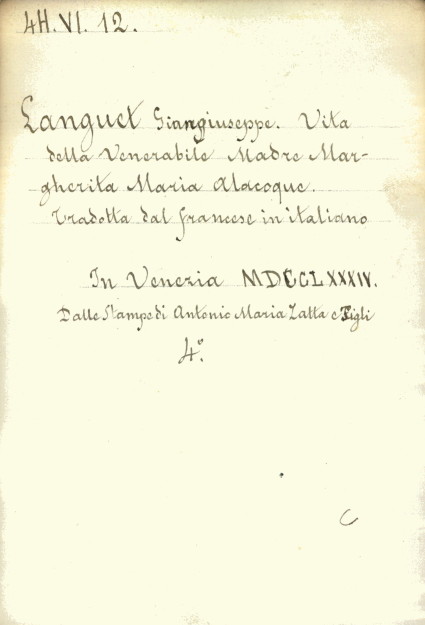 4H. VI. 12.
Languet Giangiuseppe. Vita
della Venerabile Madre Mar-
gherita Maria Alacoque.
Tradotta dal francese in italiano
In Venezia MDCCLXXXIV.
Dalle Stampe di Antonio Maria Zatta e Figli
4°.
C